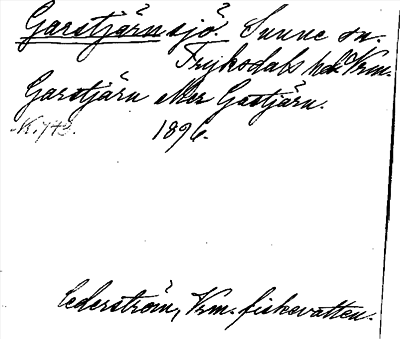 Garstjärnsjö. Sunne sn.
Fryksdals hd. Vrm.
Garstjärn eller Gastjärn.
1896.
Cederström, Vrm. fiskevatten.